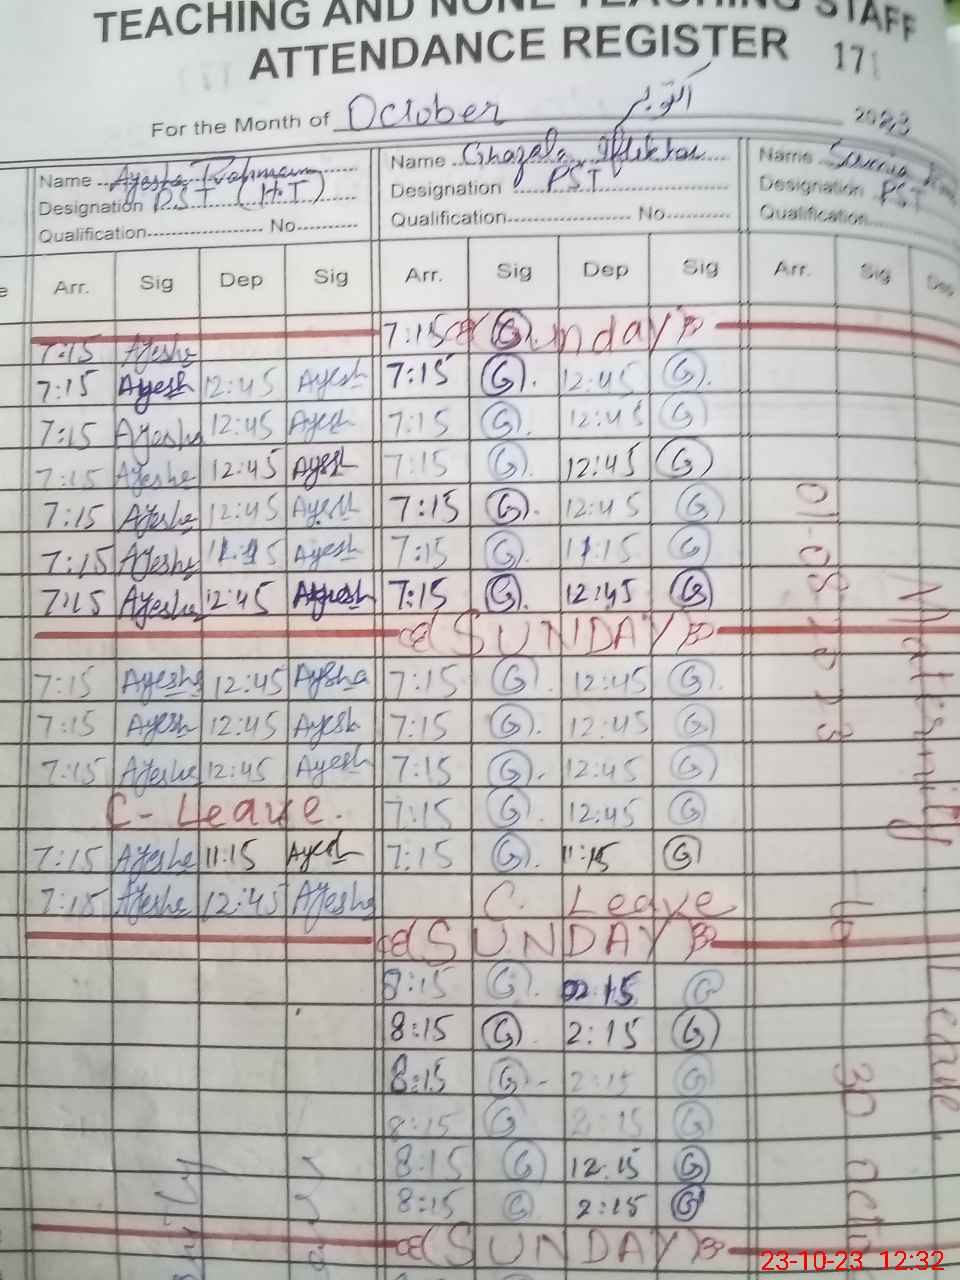 TEACHING AND NONE TEACHING STAFF
ATTENDANCE REGISTER 171
For the Month of October اکتوبر 2023
Name Ayesha Rehman Name Ghazala Iftikhar Name
Designation PST (H.T) Designation PST Designation PST
Qualification No Qualification No Qualification
Arr. Sig Dep Sig Arr. Sig Dep Sig Arr. Sig Dep
7:15 Ayesha 7:15 G Sunday
7:15 Ayesh 12:45 Ayesh 7:15 G. 12:45 G.
7:15 Ayesha 12:45 Ayesh 7:15 G 12:45 G
7:15 Ayesha 12:45 Ayesh 7:15 G. 12:45 G
7:15 Ayesha 12:45 Ayesh 7:15 G. 12:45 G
7:15 Ayesha 11:15 Ayesh 7:15 G. 11:15 G
7:15 Ayesha 12:45 Ayesh 7:15 G. 12:45 G
(SUNDAY)
7:15 Ayesha 12:45 Aysha 7:15 G. 12:45 G.
7:15 Ayesh 12:45 Ayesh 7:15 G. 12:45 G
7:15 Ayesha 12:45 Ayesh 7:15 G. 12:45 G
C- Leave. 7:15 G. 12:45 G
7:15 Ayesha 11:15 Ayesh 7:15 G. 11:15 G
7:15 Ayesha 12:45 Ayesha C. Leave
(SUNDAY)
8:15 G. 02:15 G
8:15 G. 2:15 G
8:15 G- 2:15 G
8:15 G 2:15 G
8:15 G 12:15 G
8:15 G 2:15 G
(SUNDAY)
01-08-2023 to 30 oct
Maternity Leave
23-10-23 12:32